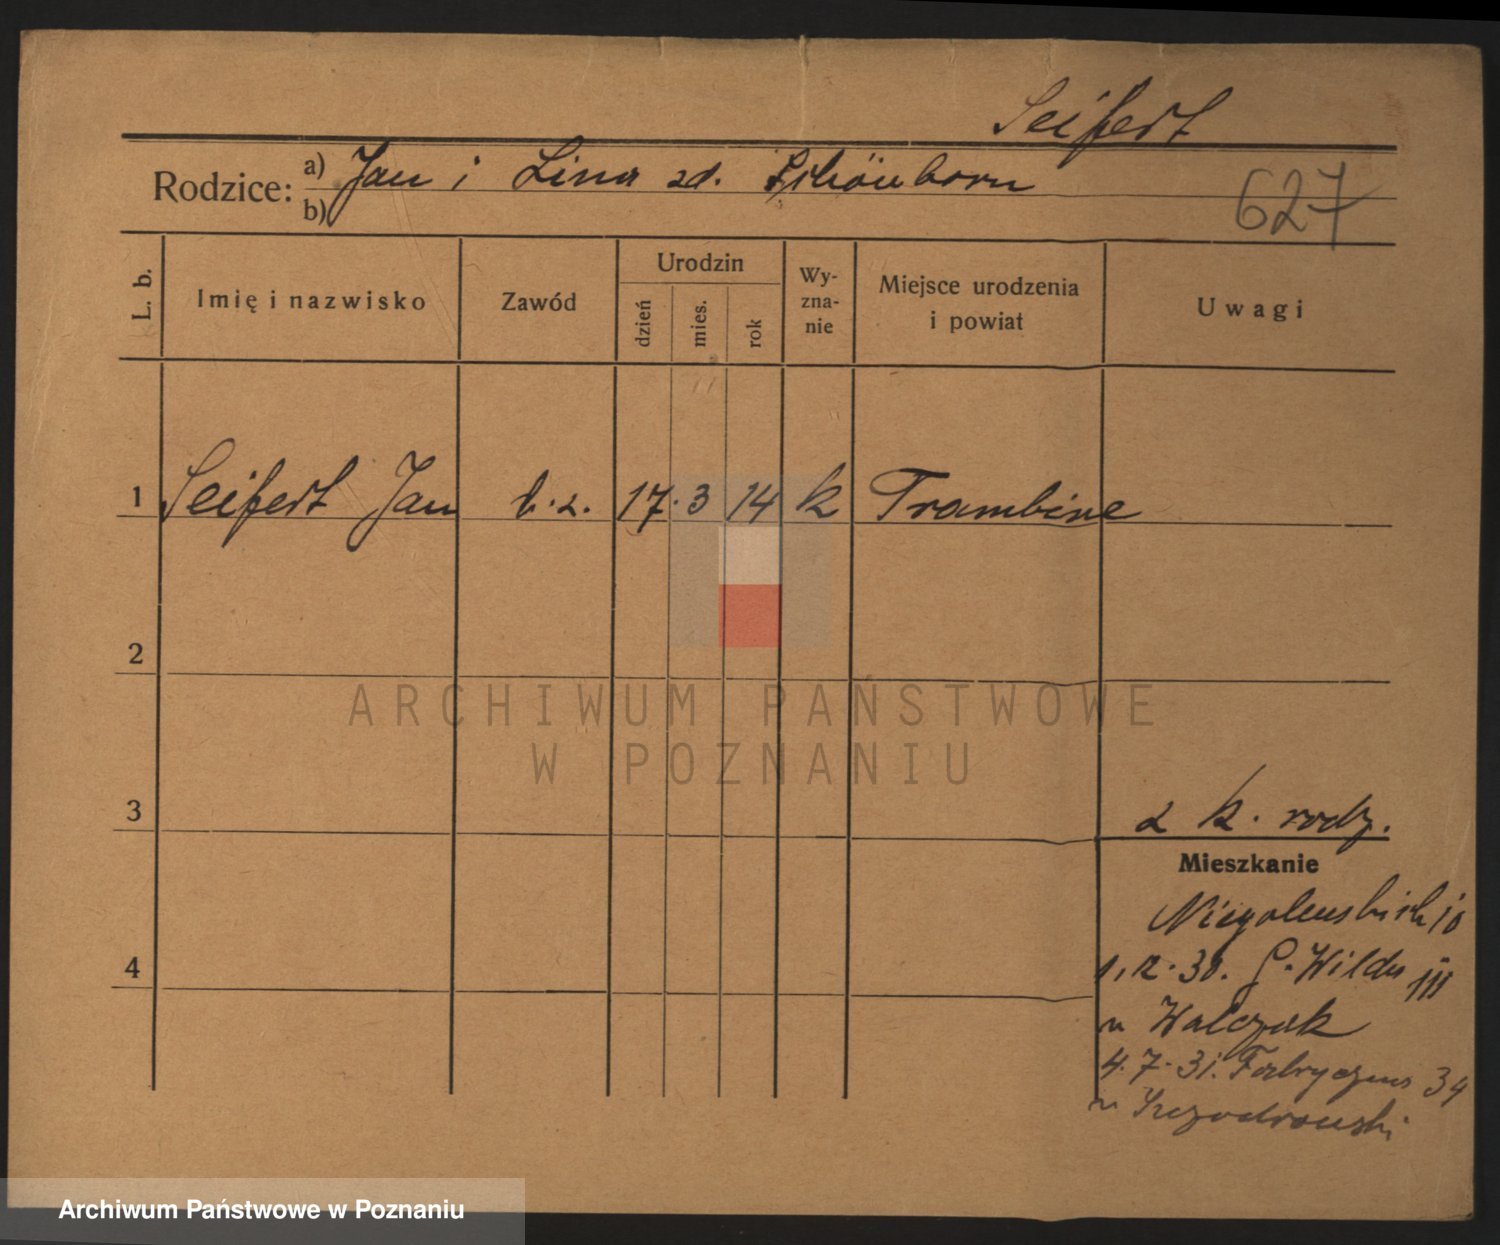 Seifert
Rodzice: a) Jan i Lina zd. Schönborn
b)
627
L. b.
Imię i nazwisko
Zawód
Urodzin
dzień
mies.
rok
Wy-
zna-
nie
Miejsce urodzenia
i powiat
Uwagi
1 Seifert Jan b.z. 17.3 14 k Trambine
2
ARCHIWUM PAŃSTWOWE
W POZNANIU
3
z k. rodz.
Mieszkanie
Niegolewskich 10
4
1.12.30. G. Wilda 111
u Walczak
4.7.31. Fabryczna 34
u
Archiwum Państwowe w Poznaniu